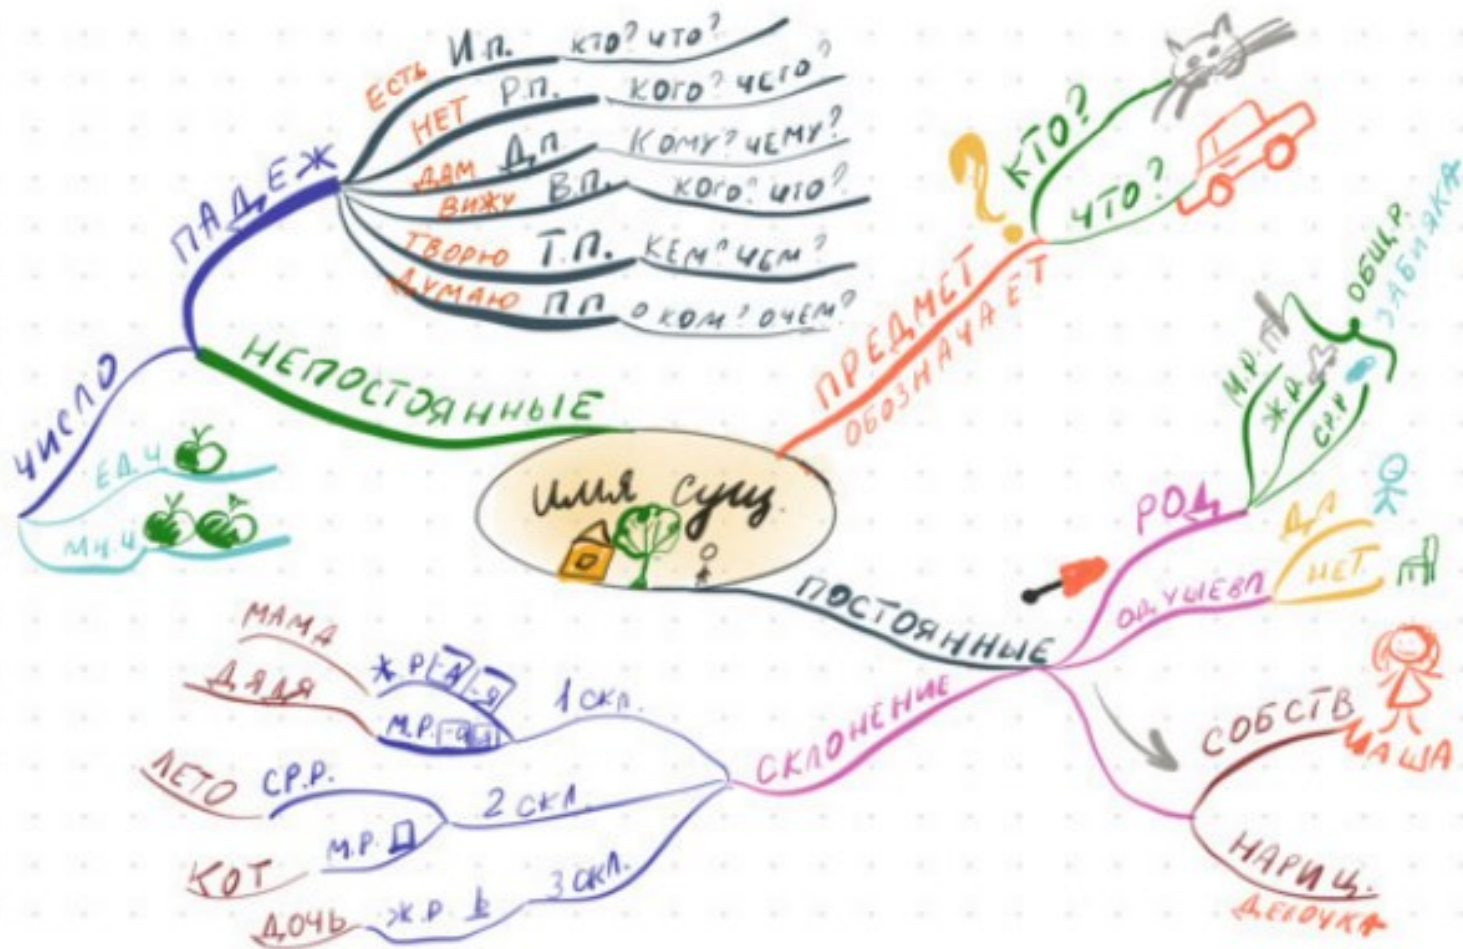 ИМЯ СУЩ.
НЕПОСТОЯННЫЕ
ПАДЕЖ
ЕСТЬ И.П. КТО? ЧТО?
НЕТ Р.П. КОГО? ЧЕГО?
ДАМ Д.П. КОМУ? ЧЕМУ?
ВИЖУ В.П. КОГО? ЧТО?
ТВОРЮ Т.П. КЕМ? ЧЕМ?
ДУМАЮ П.П О КОМ? О ЧЕМ?
ЧИСЛО
ЕД.Ч
МН.Ч
ПРЕДМЕТ
ОБОЗНАЧАЕТ
?
КТО?
ЧТО?
ПОСТОЯННЫЕ
РОД
М.Р.
Ж.Р.
СР.Р
ОБЩ.Р.
ЗАБИЯКА
ОДУШЕВЛ
ДА
НЕТ.
СОБСТВ
МАША
НАРИЦ.
ДЕВОЧКА
СКЛОНЕНИЕ
1 СКЛ.
Ж.Р -А -Я
МАМА
М.Р. -а -я
ДЯДЯ
2 СКЛ.
СР.Р.
ЛЕТО
М.Р.
КОТ
3 СКЛ.
Ж.Р Ь
ДОЧЬ